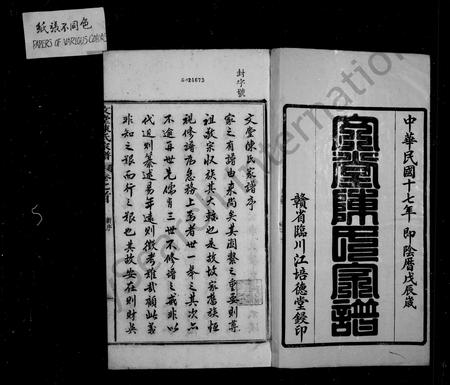 紙張不同色
PAPERS OF VARIOUS COLORS
中華民國十七年 即陰曆戊辰歲
文堂陳氏家譜
贛省臨川江培德堂鋟印
封字號
文堂陳氏家譜序
家之有譜由來尚矣其關繫之重要則尊
祖敬宗收族其大綱也是故故家舊族恒
視修譜為急務上焉者世一舉之其次亦
不逾再世先儒有三世不修譜之戒非以
代近則纂述易年遠則徵考難哉顧此義
非知之艱而行之艱也其故安在則財與